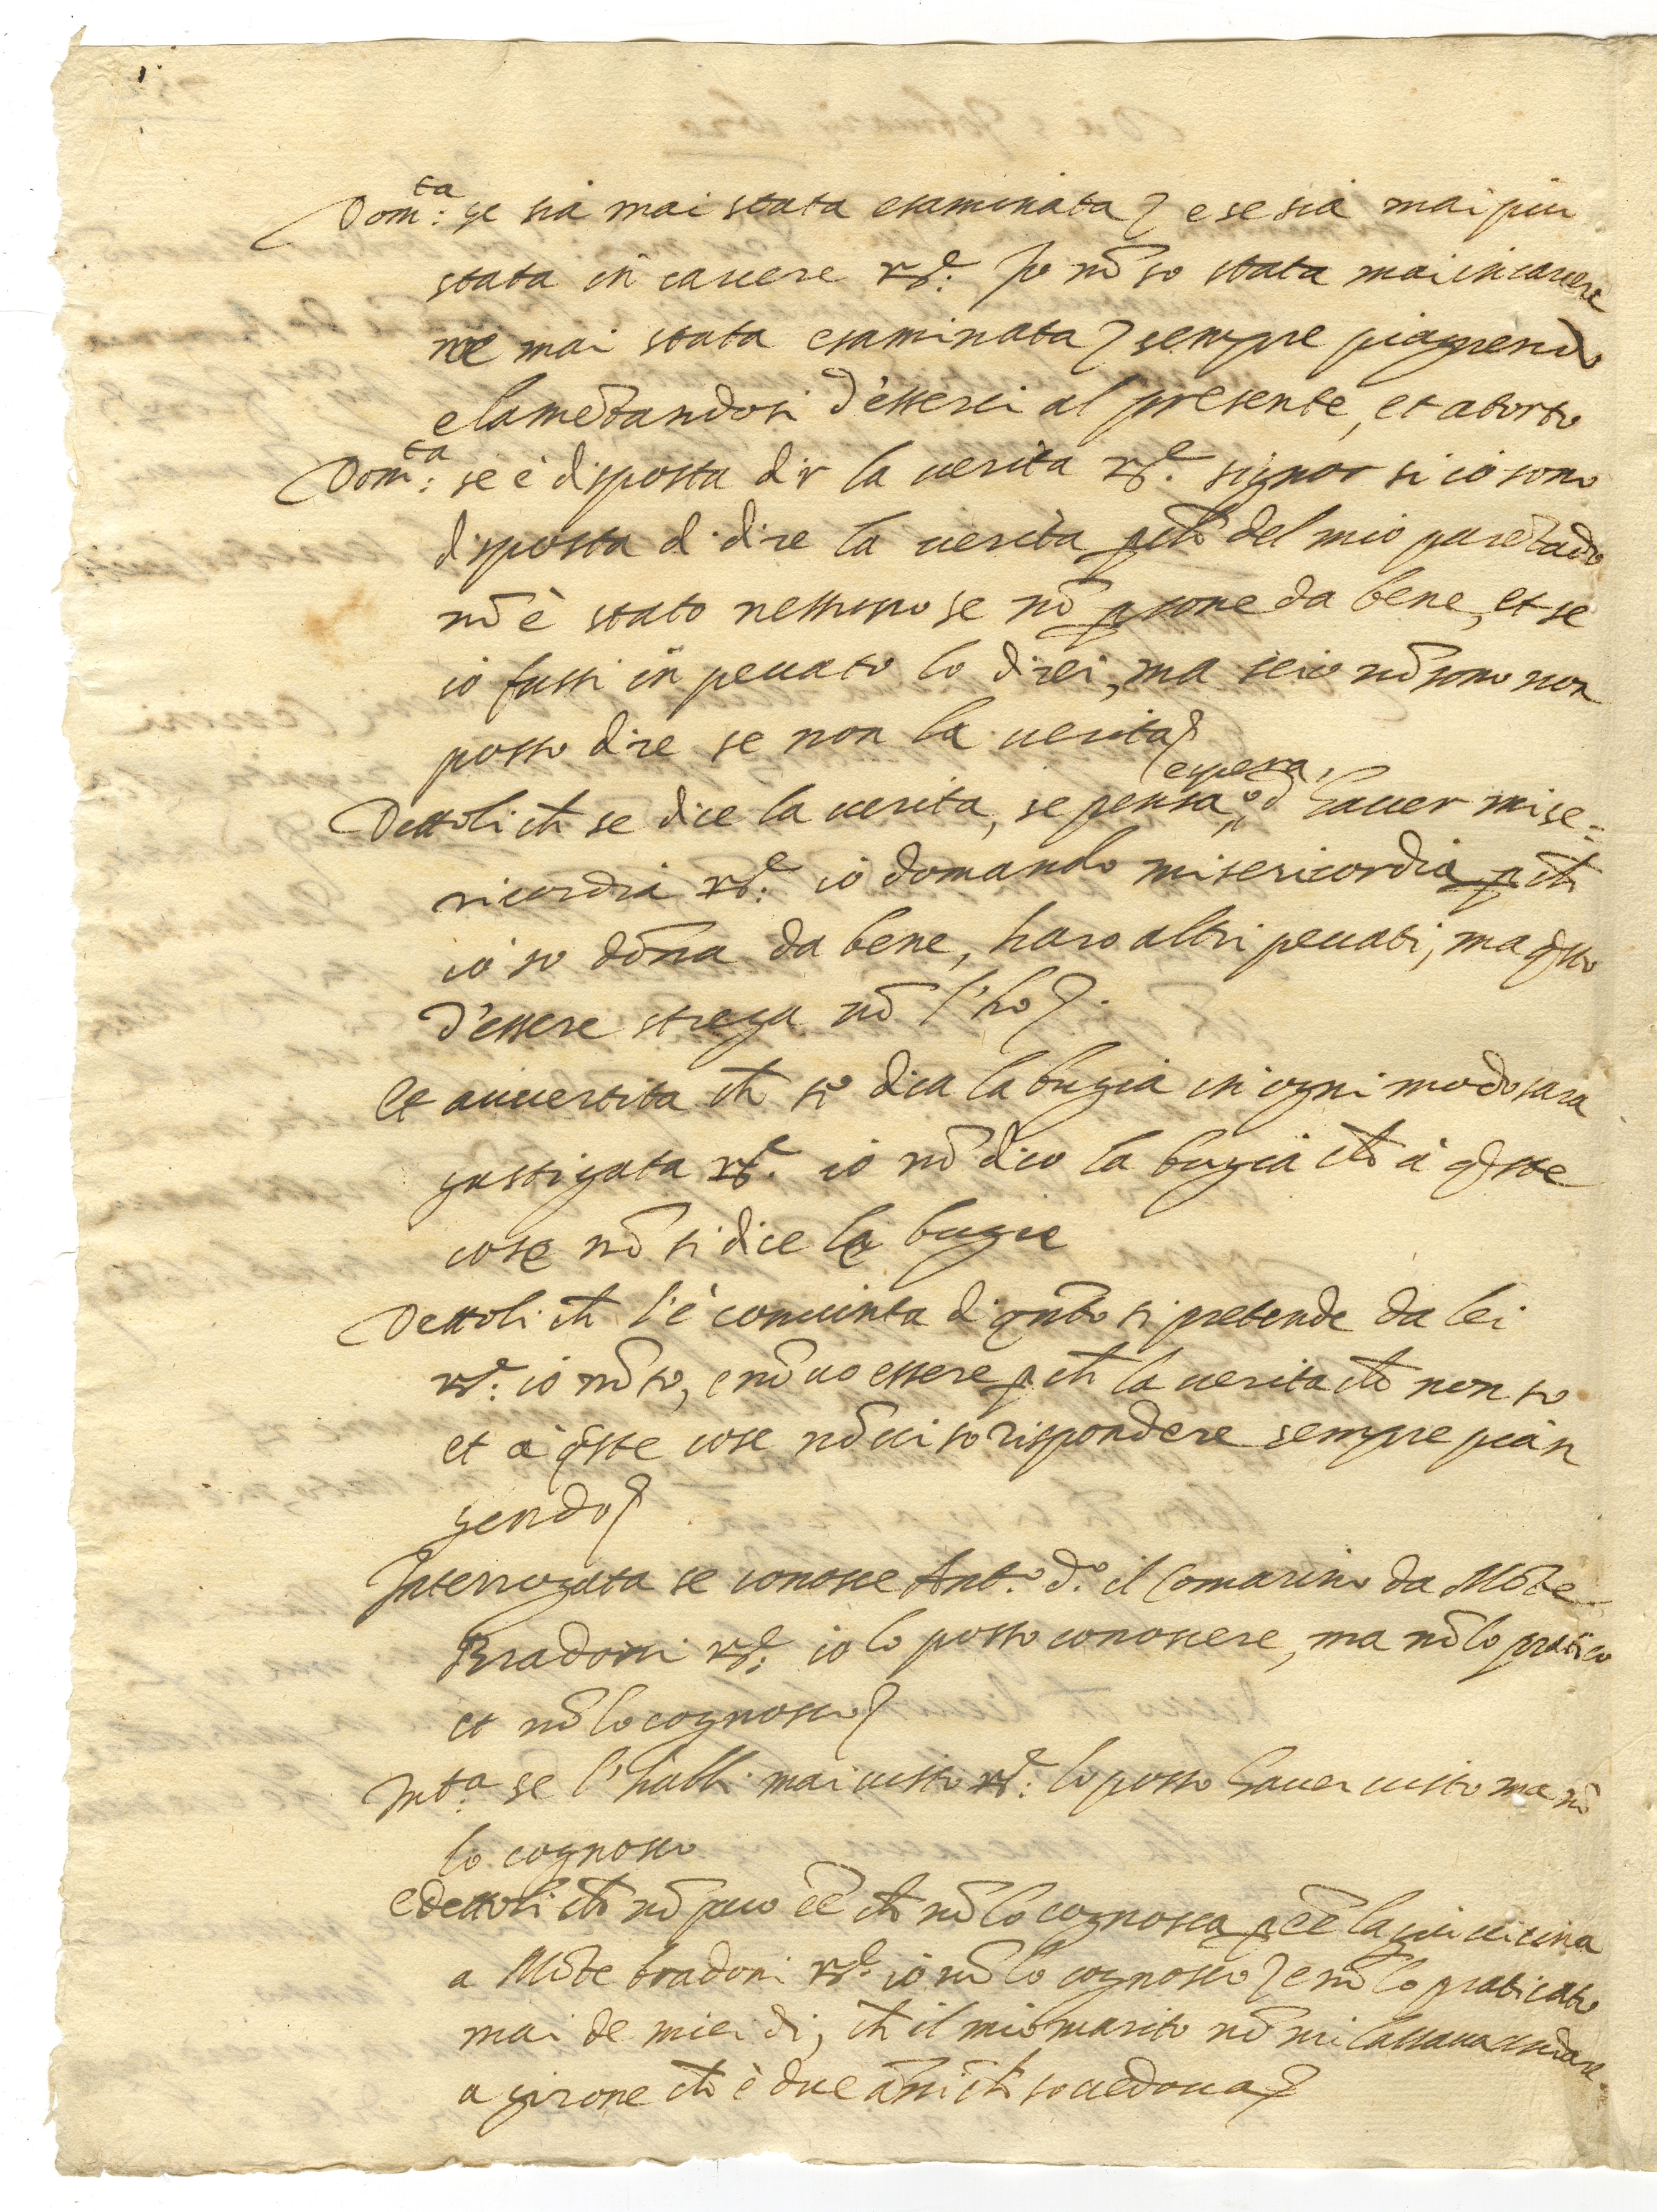 Dom.ta se sia mai stata esaminata, e se sia mai piu
stata in carcere rs.e: Io nõ so stata mai in carcere
ne mai stata esaminata, sempre piagnendo
e lamẽtandosi d'esserci al presente, et a torto
Dom.ta: se è disposta dir la verita rs.e. signor si io sono
disposta di dire la verità p̱ch̃ del mio parẽtado
nõ è stato nessuno se nõ p̱sone da bene, et se
io fussi in peccato lo direi, ma se io nõ sono non
posso dire se non la verita
espera,
Dettoli ch̃ se dice la verita, se pensa, d haver mise=
ricordia rs.e. io domando misericordia p̱ch̃
io so dõna da bene, haro altri peccati, ma q̃sto
d'essere strega nõ l'ho.
Et avvertita ch̃ se dica la bugia in ogni modo sara
gastigata rs.e. io nõ dico la bugia ch̃ à q̃ste
cose nõ si dice le bugie
Dettoli ch̃ l'è convinta di q̃nto si pretende da lei
rs.e: io nõ so, e nõ vo essere p̱ch̃ la verita ch̃ non so
et a q̃ste cose nõ ci so rispondere sempre pian
gendo
Interrogata se conosce Ant.o d.o il Comarino da Mõte
Bradoni rs.e: io lo posso conoscere, ma nõ lo pratico
et nõ lo cognosco
Int.a se l'habbi mai visto rs.e: lo posso haver visto ma nõ
lo cognosco
e dettoli ch̃ nõ puo eẽ ch̃ nõ lo cognosca p̱ eẽ la qui vicina
a Mõte bradoni rs.e. io nõ lo cognosco, e nõ lo praticato
mai de miei di, ch̃ il mio marito nõ mi lassava andare
a girone ch̃ è due ãni ch̃ so vedova